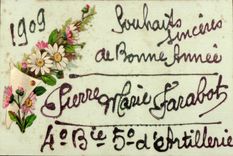 1909
Souhaits
sincères
de Bonne Année
Pierre Marie Farabot
4º Bie 5º d'Artillerie